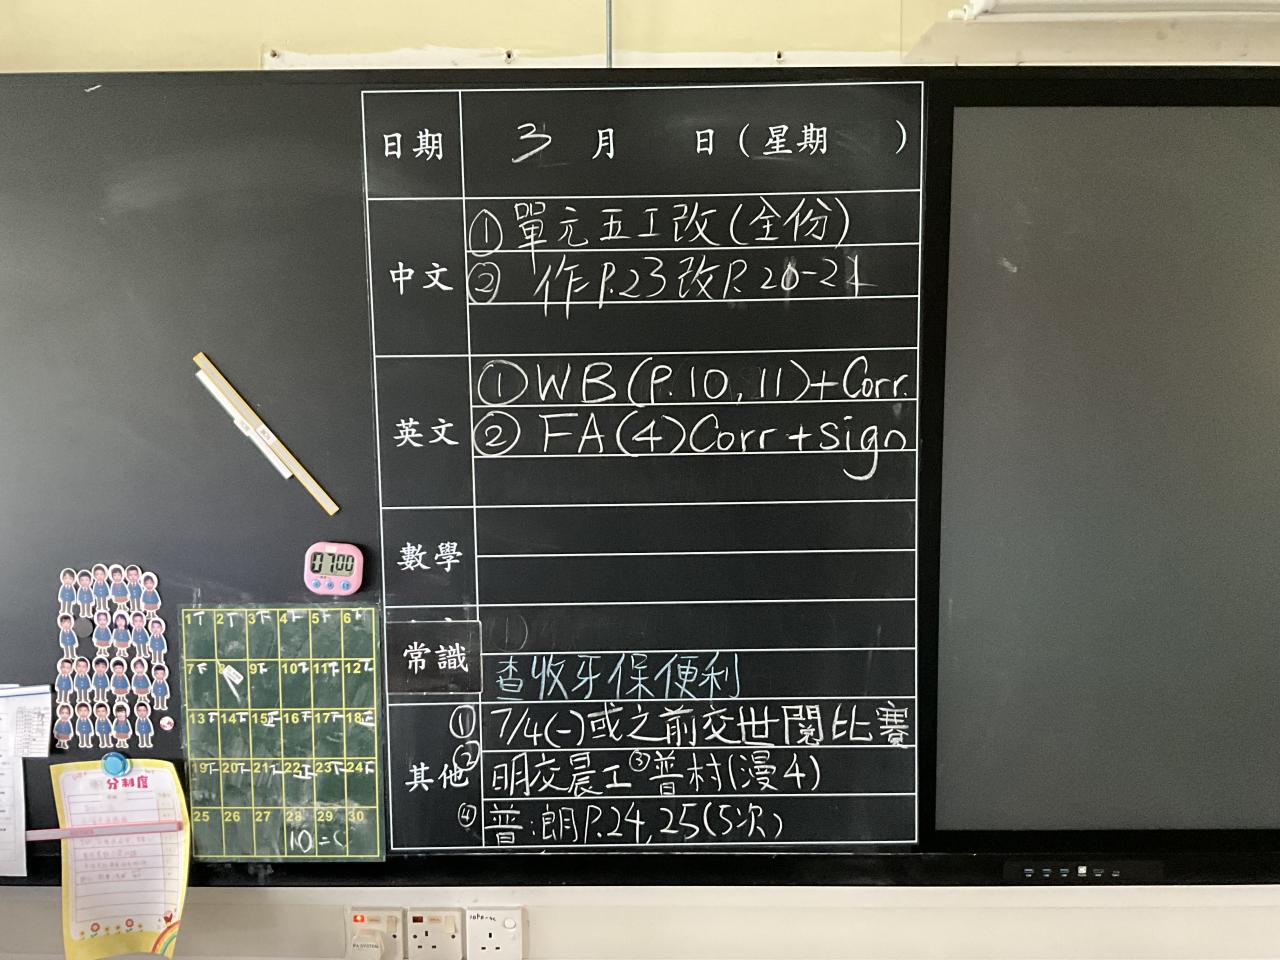 日期 3 月 日(星期 )
中文
①單元五工改(全份)
② 作P.23改P.20-21
英文
①WB(P.10,11)+Corr.
② FA(4)Corr+sign
數學
常識
查收牙保便利
其他
① 7/4(一)或之前交世閱比賽
② 明交晨工 ③普村(漫4)
④ 普:朗P.24,25(5次)
07:00
1 2 3 4 5 6
7 8 9 10 11 12
13 14 15 16 17 18
19 20 21 22 23 24
25 26 27 28 29 30
10=(
分制度
PA SYSTEM